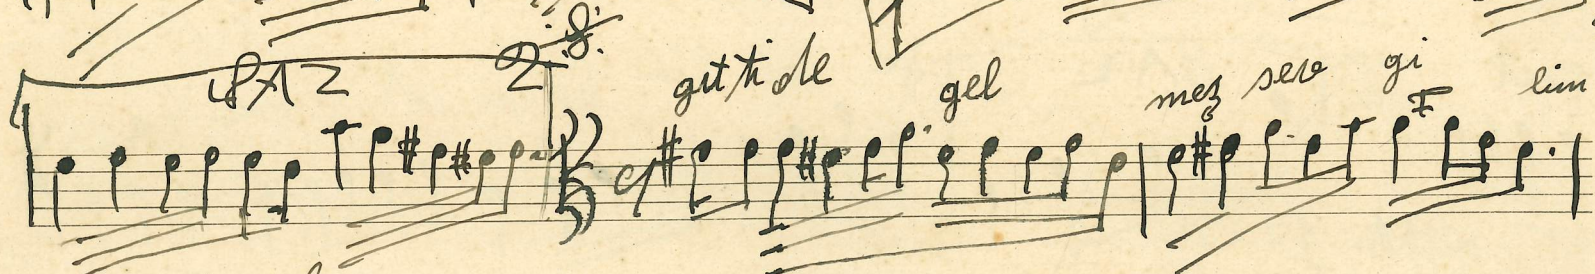 SAZ 2
gitti de gel mez sev gi lim